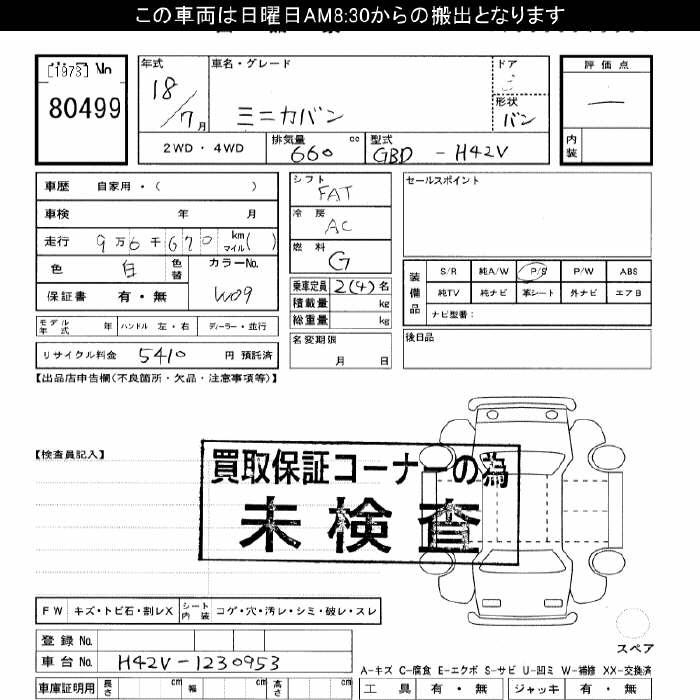 この車両は日曜日AM8:30からの搬出となります
[1973] No
80499
年式 車名・グレード ドア 評価点
18/7月 ミニカバン 形状 バン —
2WD・4WD 排気量 660 cc 型式 GBD - H42V 内装
車歴 自家用・( )
車検 年 月
走行 9万6千670 km マイル( )
色 白 色替 カラーNo. W09
保証書 有・無
モデル年式 年 ハンドル 左・右 ディーラー・並行
リサイクル料金 5410 円 預託済
シフト FAT
冷房 AC
燃料 G
乗車定員 2(4)名
積載量 kg
総重量 kg
名変期限 月 日
セールスポイント
装備品 S/R 純A/W P/S P/W ABS
純TV 純ナビ 革シート 外ナビ エアB
ナビ型番:
後日品
【出品店申告欄(不良箇所・欠品・注意事項等)】
【検査員記入】
買取保証コーナーの為
未検査
FW キズ・トビ石・割レX シート内装 コゲ・穴・汚レ・シミ・破レ・スレ
スペア
登録No.
車台No. H42V-1230953
A-キズ C-腐食 E-エクボ S-サビ U-凹ミ W-補修 XX-交換済
車庫証明用 長さ cm 幅 cm 高さ cm 工具 有・無 ジャッキ 有・無